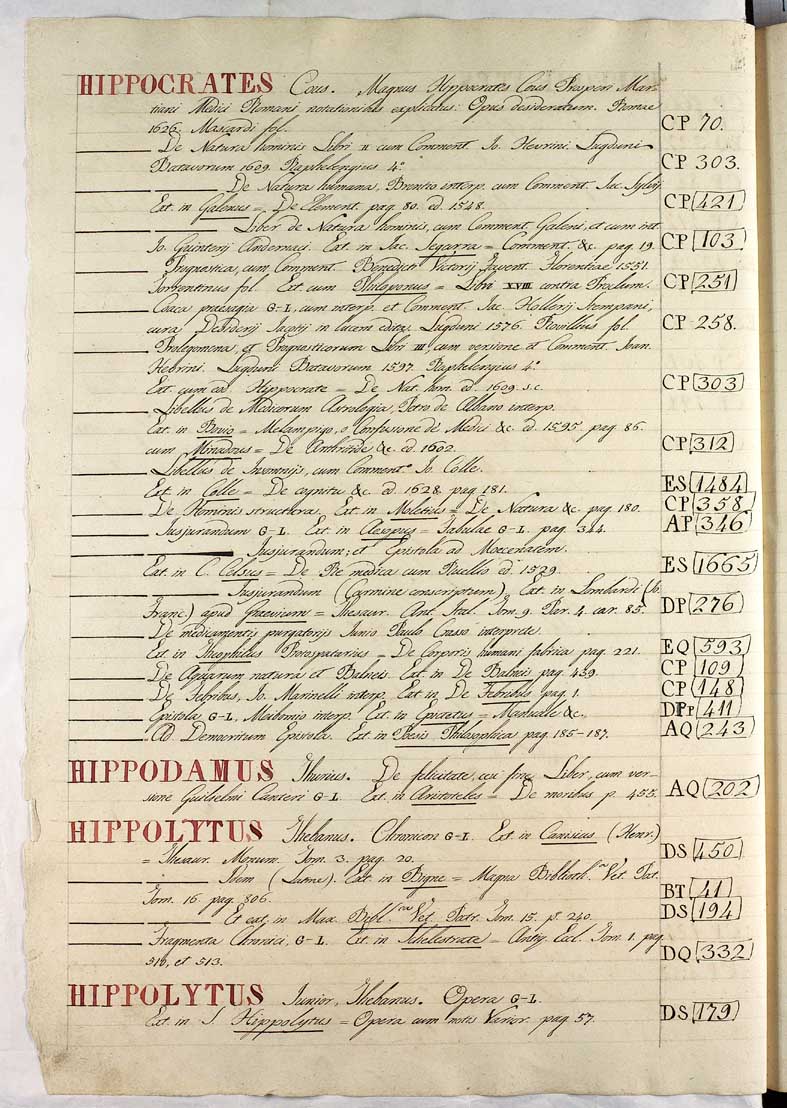 HIPPOCRATES Cous. Magnus Hippocrates Cous Prosperi Mar-
tiani Medici Romani notationibus explicatus: Opus desideratum. Romae
1626. Mascardi fol. CP 70.
De Natura hominis Libri II cum Comment. Io. Heurini. Lugduni
Batavorum 1609. Raphelengius 4º CP 303.
De Natura humana, Brentio interp. cum Comment. Iac. Sylvij
Ext. in Galenus = De Element. pag. 80. ed. 1548. CP 421
Liber de Natura hominis, cum Comment. Galeni, et cum int.
Io. Guinterij Andernaci. Ext. in Iac. Segarra = Comment. &c. pag. 19. CP 103
Prognostica, cum Comment. Benedicti Victorij Favent. Florentiae 1551.
Torrentinus fol. Ext. cum Philoponus = Libri XVIII contra Proclum. CP 251
Coaca praesagia G-L, cum interp. et Comment. Iac. Hollerij Stempani,
cura Desiderij Iacotij in lucem edita. Lugduni 1576. Rovillius fol. CP 258.
Prolegomena, et Prognosticorum Libri III, cum versione et Comment. Ioan.
Heurini. Lugduni Batavorum 1597. Raphelengius 4º
Ext. cum eod. Hippocrate = De Nat. hom. ed. 1609. s.c. CP 303
Libellus de Medicorum Astrologia, Petro de Albano interp.
Ext. in Bovio = Melampigo, o Confusione de' Medici &c. ed. 1595. pag. 86.
cum Minadous = De Arthritide &c. ed. 1602. CP 312
Libellus de Insomnijs, cum Comment.º Io. Colle.
Ext. in Colle = De cognitu &c. ed. 1628. pag. 181. ES 1484
De Hominis structura. Ext. in Moletius = De Natura &c. pag. 180. CP 358
Iusjurandum G-L. Ext. in Aesopus = Fabulae G-L. pag. 324. AP 346
Iusjurandum; et Epistola ad Moecenatem.
Ext. in C. Celsus = De Re medica cum Ruellio ed. 1529. ES 1665
Iusjurandum (Carmine conscriptum). Ext. in Lombardi (Io.
Franc.) apud Graevium = Thesaur. Ant. Ital. Tom. 9. Par. 4. car. 85. DP 276
De medicamentis purgatorijs Iunio Paulo Crasso interprete.
Ext. in Theophilus Protospatarius = De Corporis humani fabrica pag. 221. EQ 593
De Aquarum natura et Balneis. Ext. in De Balneis pag. 439. CP 109
De Febribus, Io. Marinelli interp. Ext. in De Febribus pag. 1. CP 148
Epistola G-L, Meibomio interp. Ext. in Epictetus = Manuale &c. DPp 411
Ad Democritum Epistola. Ext. in Poesis Philosophica pag. 185-187. AQ 243
HIPPODAMUS Thurius. De felicitate, ceu fine Liber, cum ver-
sione Guilielmi Canteri G-L. Ext. in Aristoteles = De moribus p. 455. AQ 202
HIPPOLYTUS Thebanus. Chronicon G-L. Ext. in Canisius (Henr.)
= Thesaur. Monum. Tom. 3. pag. 20. DS 450
Idem (Latine). Ext. in Bigne = Magna Biblioth.ca Vet. Pat.
Tom. 16. pag. 806. BT 41
Et ext. in Max. Bibl.ca Vet. Patr. Tom. 15. p. 240. DS 194
Fragmenta Chronici, G-L. Ext. in Schelestrate = Antiq. Eccl. Tom. 1. pag.
510, et 513. DQ 332
HIPPOLYTUS Junior, Thebanus. Opera G-L.
Ext. in S. Hippolytus = Opera cum notis Varior. pag. 57. DS 179